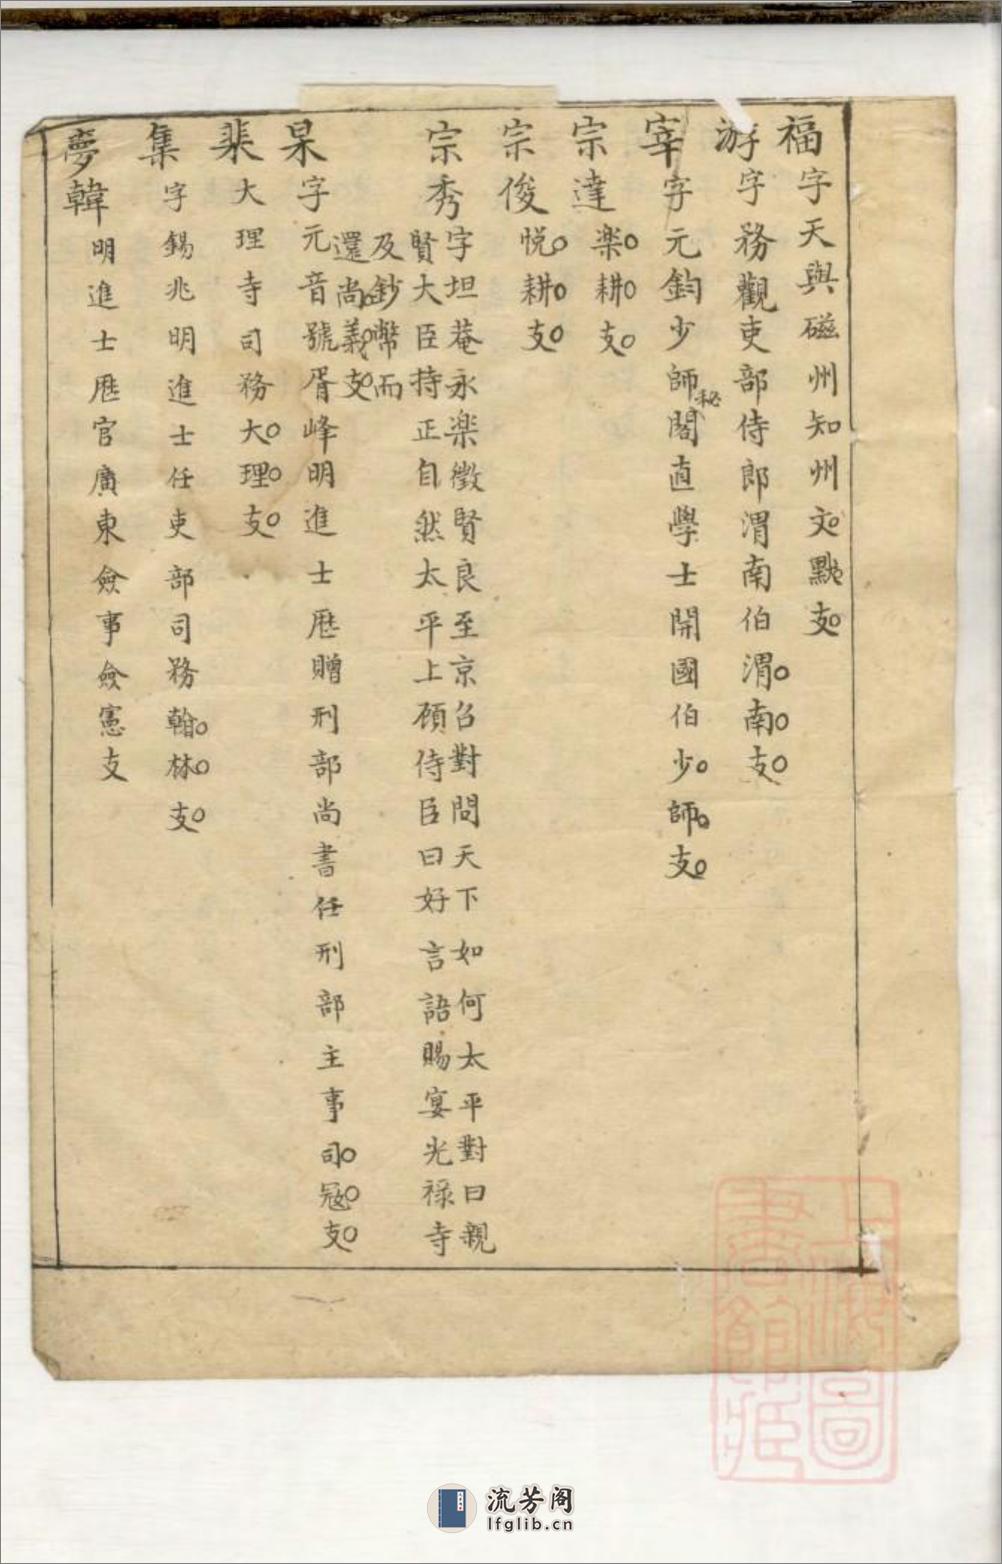 福字天與磁州知州文點支
游字務觀吏部侍郎渭南伯渭南支
宰字元鈞少師秘閣直學士開國伯少師支
宗達樂耕支
宗俊悅耕支
宗秀字坦菴永楽徵賢良至京召對問天下如何太平對曰親
賢大臣持正自然太平上顧侍臣曰好言語賜宴光祿寺
及鈔幣而
還尚義支
杲字元音號胥峰明進士歷贈刑部尚書任刑部主事司冦支
棐大理寺司務大理支
集字錫兆明進士任吏部司務翰林支
夢韓明進士歷官廣東僉事僉憲支
上海圖
書館藏
流芳阁
lfglib.cn